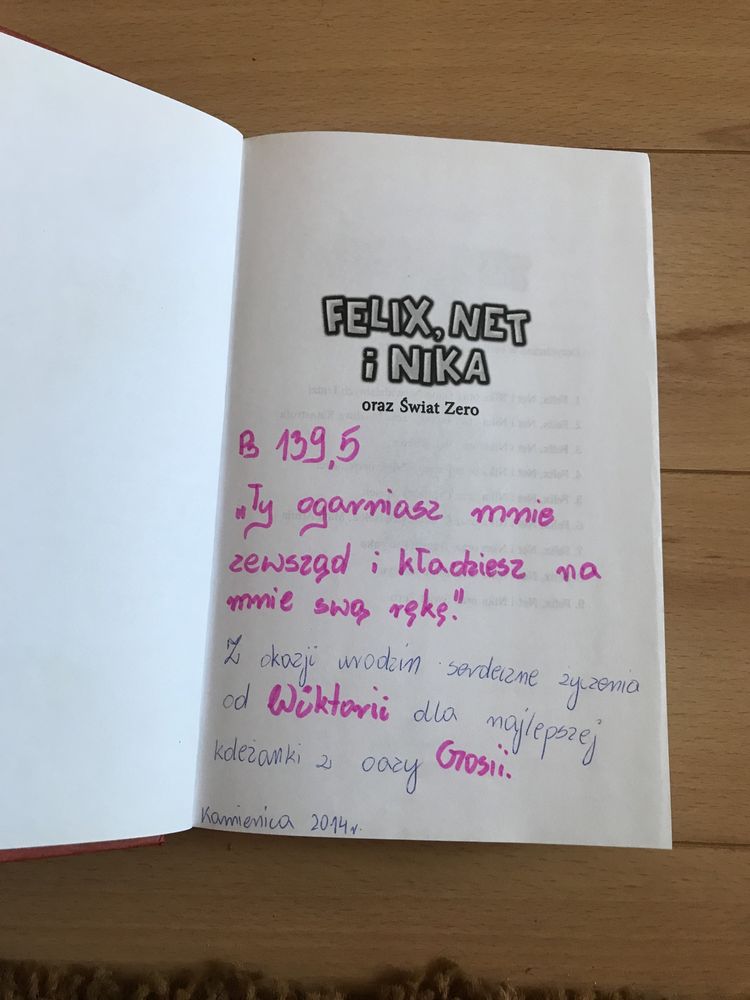 FELIX, NET
i NIKA
oraz Świat Zero
Ps 139,5
„Ty ogarniasz mnie
zewsząd i kładziesz na
mnie swą rękę."
Z okazji urodzin serdeczne życzenia
od Wiktorii dla najlepszej
koleżanki z oazy Gosii.
Kamienica 2014r.